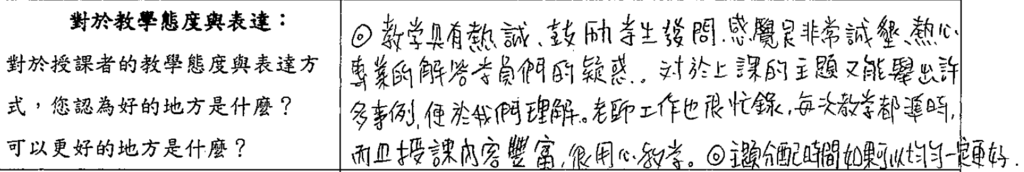 對於教學態度與表達：
對於授課者的教學態度與表達方
式，您認為好的地方是什麼？
可以更好的地方是什麼？
◎教学具有熱誠、鼓励学生發問，感覺是非常誠墾、熱心
專業的解答学員們的疑惑。对於上課的主題又能舉出許
多事例，便於我們理解。老師工作也很忙錄，每次教学都準時，
而且授課內容豐富，很用心教学。◎主題分配時間如果可以均勻一定更好.